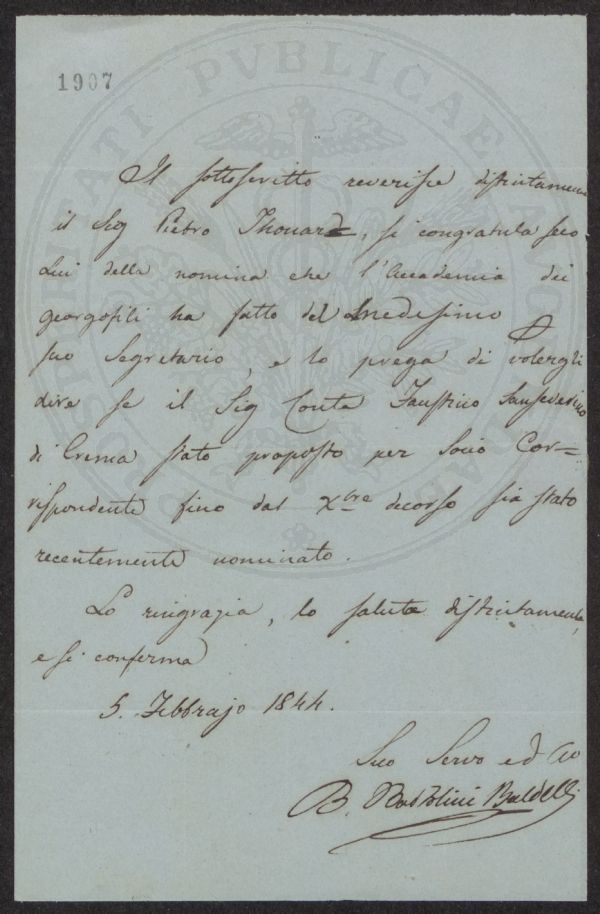 1907
PROSPERITATI PVBLICAE AVGENDAE
Il sottoscritto reverisce distintamente
il Sig Pietro Thouar=, si congratula seco
Lui della nomina che l'Accademia dei
georgofili ha fatto del Medesimo
suo Segretario, e lo prega di volergli
dire se il Sig Conte Faustino Sanseverino
di Crema stato proposto per Socio Cor=
rispondente fino dal Xbre decorso sia stato
recentemente nominato.
Lo ringrazia, lo saluta distintamente,
e si conferma
5. Febbrajo 1844.
Suo Servo ed
B. Bartolini Baldelli